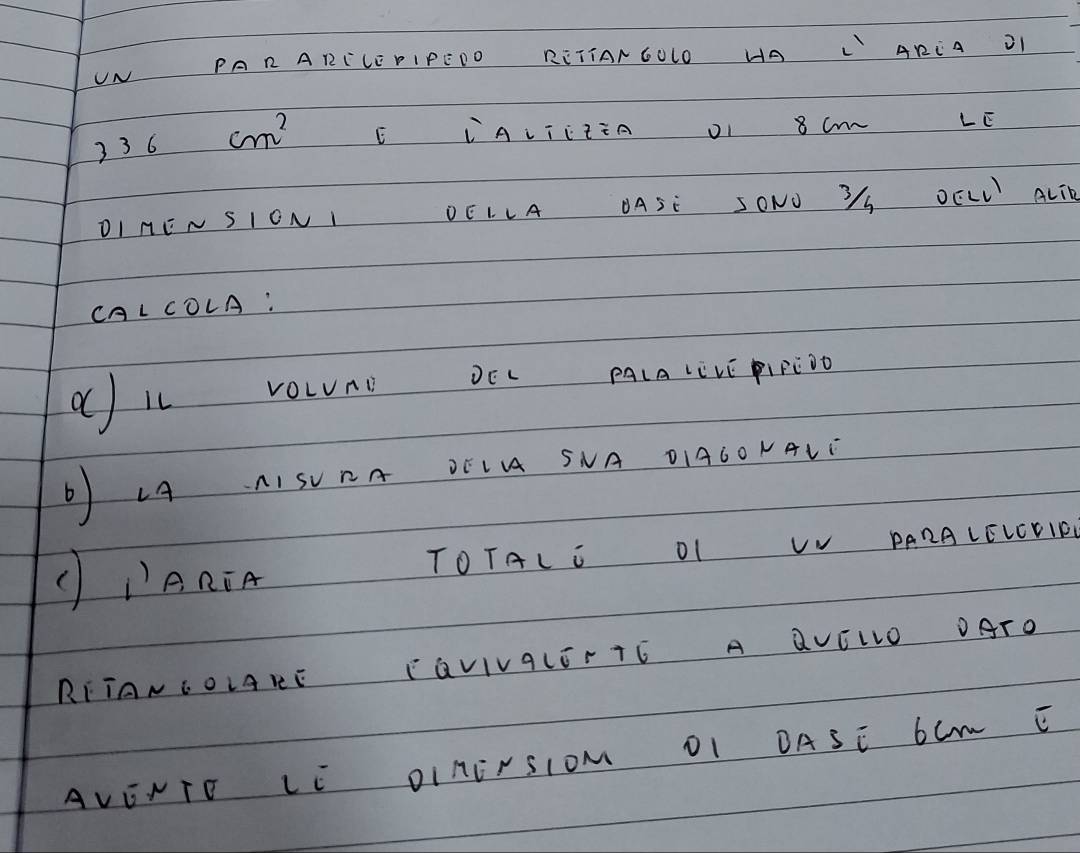 UN PARARELEPIPEDO RETTANGOLO HA L' AREA DI
336 cm² E L'ALTEZZA DI 8 cm LE
DIMENSIONI DELLA BASE SONO 3/4 DELL' ALTE
CALCOLA:
a) IL VOLUME DEL PALALELEPIPEDO
b) LA MISURA DELLA SUA DIAGONALE
c) L'AREA TOTALE DI UN PARALELEPIPE
RETANGOLARE EQUIVALENTE A QUELLO DATO
AVENTE LE DIMENSIONI DI BASE 6cm E